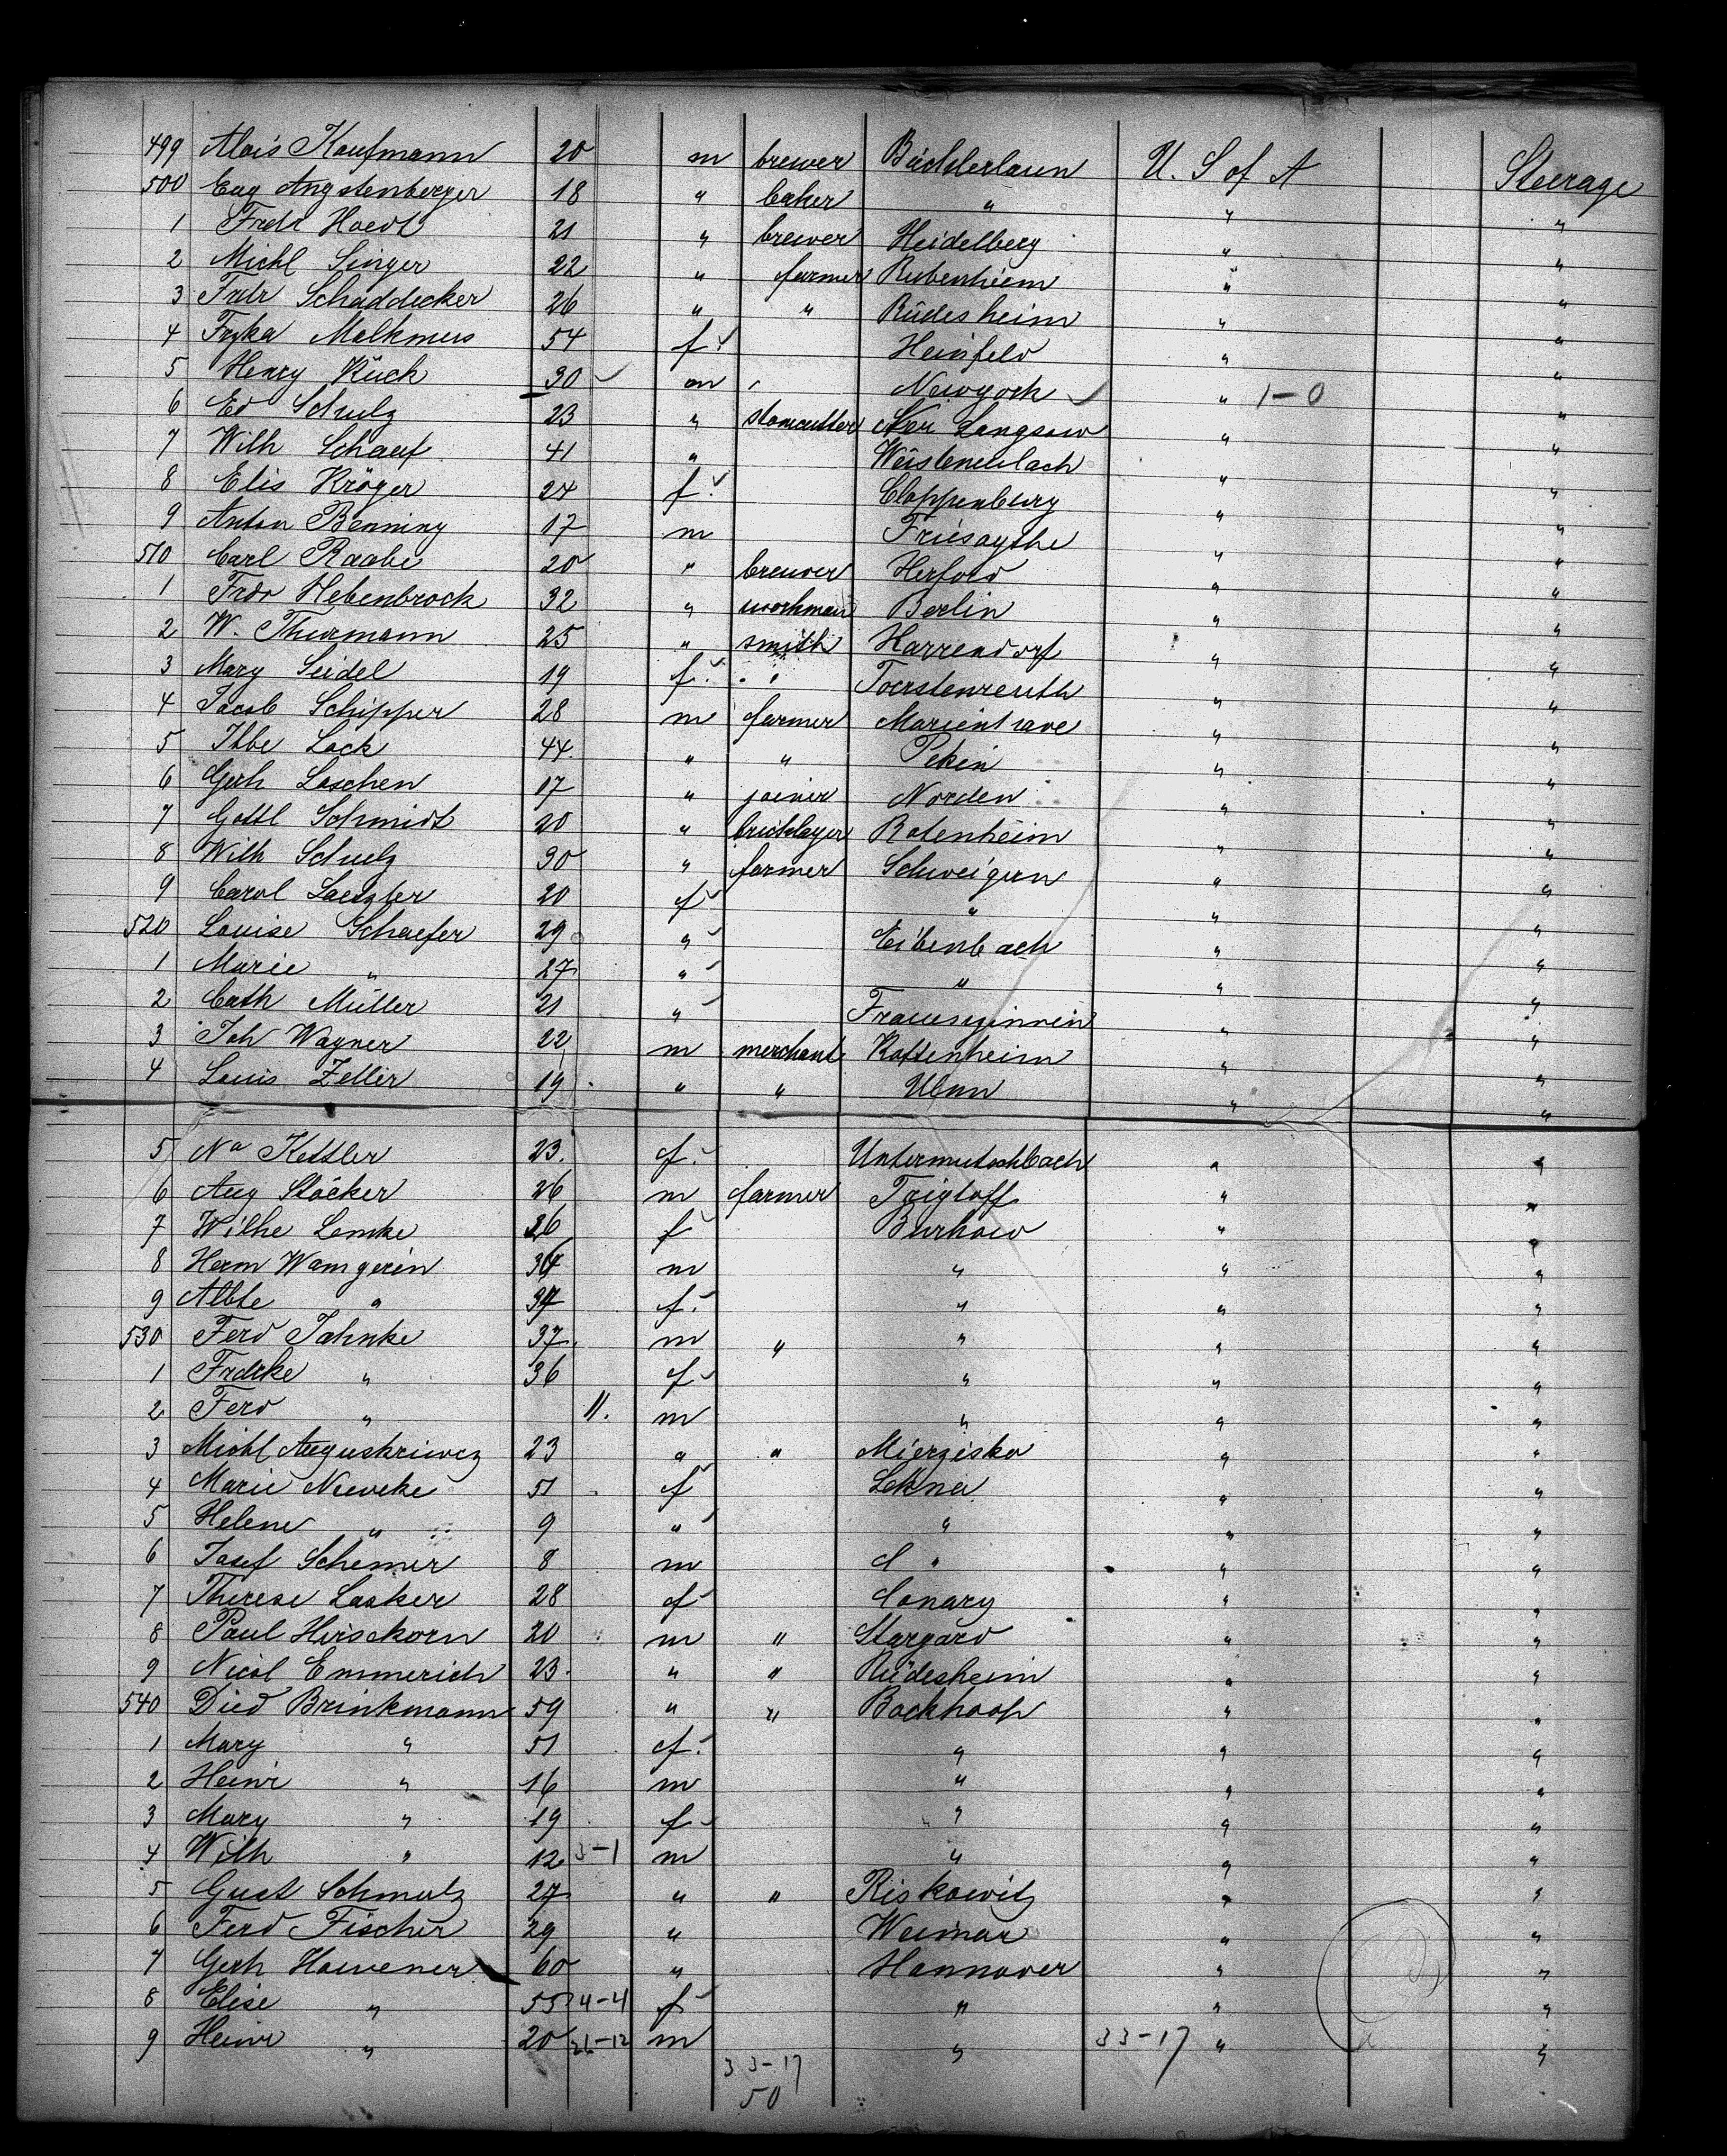 499 Alois Kaufmann 20 m brewer U. S of A Steerage
500 Eug Angstenberger 18 " baker " " "
1 Frdr Hoedt 21 " brewer Heidelberg " "
2 Michl Singer 22 " farmer Rubenheim " "
3 Frdr Schaddecker 26 " " Rüdesheim " "
4 Malkmus 54 f Heinfeld " "
5 Henry Kück 30 m Newyork " 1-0 "
6 Ed Schulz 23 " stonecutter Neu Langsow " "
7 Wilh Schauf 41 " " "
8 Elis Kröger 24 f Cloppenburg " "
9 Anton Benning 17 m Friesoythe " "
510 Carl Raabe 20 " brewer Herford " "
1 Frdr Hebenbrock 32 " workman Berlin " "
2 W. Thurmann 25 " smith Harrendorf " "
3 Mary Seidel 19 f " "
4 Jacob Schipper 28 m farmer " "
5 Ibbe Lock 44 " " Pekin " "
6 Gerh Loschen 17 " joiner Norden " "
7 Gottl Schmidt 20 " bricklayer Botenheim " "
8 Wilh Schulz 30 " farmer Schweigern " "
9 Carol 20 f " " "
520 Louise Schaefer 29 " Eibenbach " "
1 Marie " 27 " " " "
2 Cath Müller 21 " " "
3 Joh Wagner 22 m merchant Kottenheim " "
4 Louis Zeller 19 " " Ulm " "
5 Na Kettler 23 f " "
6 Aug Stöcker 26 m farmer Trigloff " "
7 Wilhe Lemke 26 f Burkow " "
8 Herm Wamgerin 34 m " " "
9 Albte " 37 f " " "
530 Ferd Jahnke 37 m " " " "
1 Frdrke " 36 f " " "
2 Ferd " 11. m " " "
3 Michl Auguskriewcz 23 " " Mierzisko " "
4 Marie Nieweke 51 f Lekna " "
5 Helene " 9 " " " "
6 Josef Schemer 8 m " " "
7 Therese Lasker 28 f Conary " "
8 Paul Hirsckorn 20 m " Stargard " "
9 Nicol Emmerich 23 " " Rüdesheim " "
540 Died Brinkmann 59 " " Backhoop " "
1 Mary " 51 f " " "
2 Heinr " 16 m " " "
3 Mary " 19 f " " "
4 Wilh " 12 3-1 m " " "
5 Gust Schmalz 27 " " Riskowitz " "
6 Ferd Fischer 29 " Weimar " "
7 Gerh Hoevener 60 " Hannover " "
8 Elise " 55 4-4 f " " "
9 Heinr " 20 26-12 m " 33-17 " "
33-17
50